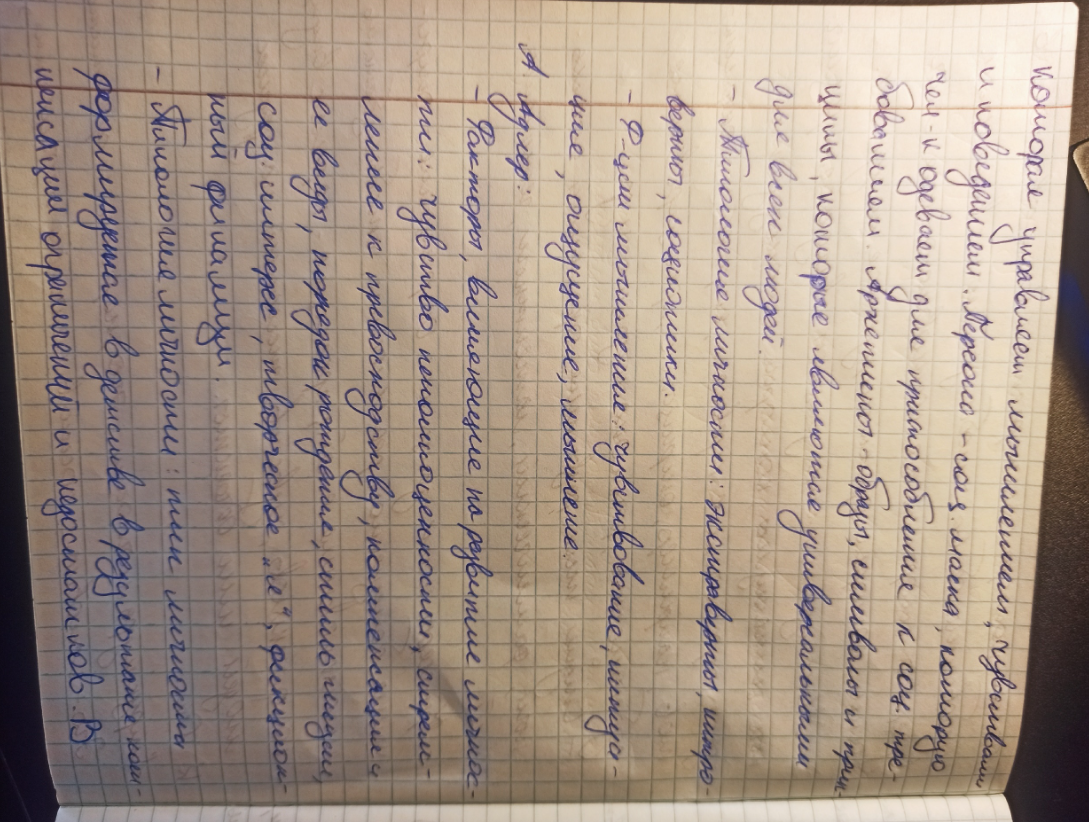 которая управляет мышлением, чувствами
и поведением. Персона - соц. маска, которую
чел-к одевает для приспособления к соц. тре-
бованиям. Архетипы - образы, символы и прин-
ципы, которые являются универсальными
для всех людей.
- Типология личности: экстраверты, интро
верты, социотипы.
- Ф-ции мышления: чувствование, интуи-
ция, ощущение, мышление.
А. Адлер:
- Факторы, влияющие на развитие личнос-
ти: чувство неполноценности, стрем-
ление к превосходству, компенсация и
ее виды, порядок рождения, стиль жизни,
соц. интерес, творческое "я", фикцион-
ный финализм.
- Типология личности: типы личности
формируются в детстве в результате ком-
пенсации ограничений и недостатков. В